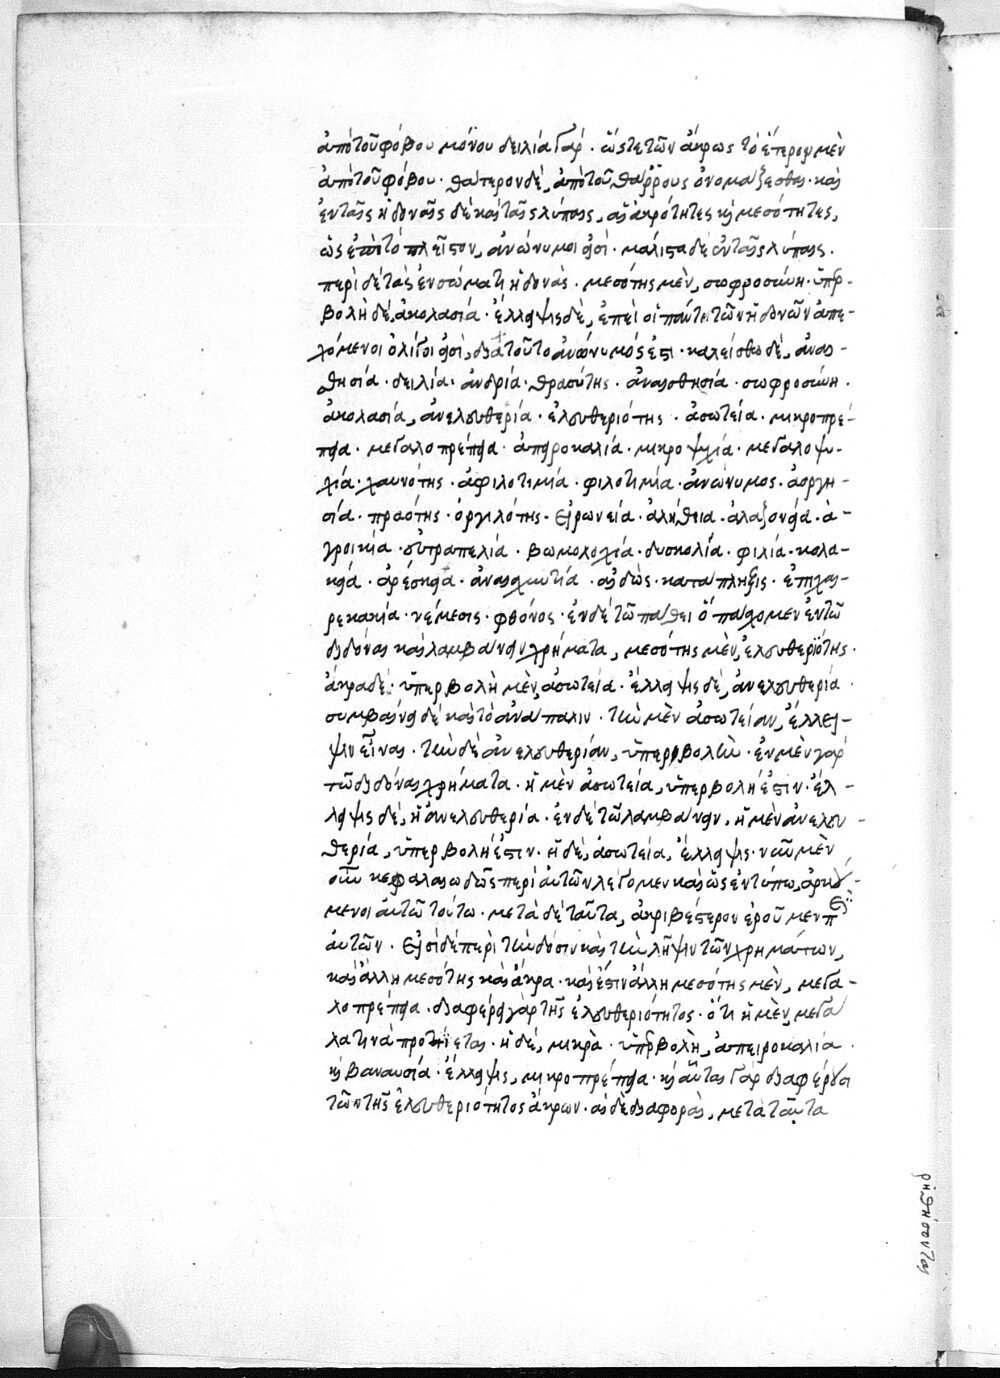 ἀπὸ τοῦ φόβου μόνου δειλία γάρ · ὥστε τῶν ἄκρων τὸ ἕτερον μὲν
ἀπὸ τοῦ φόβου · θάτερον δὲ, ἀπὸ τοῦ θάρρους ὀνομάζεσθαι · καὶ
ἐν ταῖς ἡδοναῖς δὲ καὶ ταῖς λύπαις, αἱ ἀκρότητες καὶ μεσότητες,
ὡς ἐπὶ τὸ πλεῖστον, ἀνώνυμοι εἰσί · μάλιστα δὲ ἐν ταῖς λύπαις.
περὶ δὲ τὰς ἐν σώματι ἡδονὰς · μεσότης μὲν, σωφροσύνη · ὑπερ-
βολὴ δὲ, ἀκολασία · ἔλλειψις δὲ, ἐπεὶ οἱ πάντη τῶν ἡδονῶν ἀπε-
χόμενοι ὀλίγοι εἰσὶ, διὰ τοῦτο ἀνώνυμός ἐστι · καλείσθω δὲ, ἀναι-
σθησία · δειλία · ἀνδρία · θρασύτης · ἀναισθησία · σωφροσύνη ·
ἀκολασία, ἀνελευθερία · ἐλευθεριότης · ἀσωτεία · μικροπρέ-
πεια · μεγαλοπρέπεια · ἀπειροκαλία · μικροψυχία · μεγαλοψυ-
χία · χαυνότης · ἀφιλοτιμία · φιλοτιμία · ἀνώνυμος · ἀοργη-
σία · πραότης · ὀργιλότης · εἰρωνεία · ἀλήθεια · ἀλαζονεία · ἀ-
γροικία · εὐτραπελία · βωμολοχία · δυσκολία · φιλία · κολα-
κεία · ἀρέσκεια · ἀναισχυντία · αἰδὼς · κατάπληξις · ἐπιχαι-
ρεκακία · νέμεσις · φθόνος · ἐν δὲ τῷ πάθει ὃ πάσχομεν ἐν τῷ
διδόναι καὶ λαμβάνειν χρήματα, μεσότης μὲν, ἐλευθεριότης ·
ἄκρα δὲ · ὑπερβολὴ μὲν, ἀσωτεία · ἔλλειψις δὲ, ἀνελευθερία ·
συμβαίνει δὲ καὶ τὸ ἀνάπαλιν · τὴν μὲν ἀσωτείαν, ἔλλει-
ψιν εἶναι · τὴν δὲ ἀνελευθερίαν, ὑπερβολὴν · ἐν μὲν γὰρ
τῷ διδόναι χρήματα · ἡ μὲν ἀσωτεία, ὑπερβολή ἐστιν · ἔλ-
λειψις δὲ, ἡ ἀνελευθερία · ἐν δὲ τῷ λαμβάνειν, ἡ μὲν ἀνελευ-
θερία, ὑπερβολή ἐστιν · ἡ δὲ, ἀσωτεία, ἔλλειψις · νῦν μὲν
οὖν κεφαλαιωδῶς περὶ αὐτῶν λέγομεν καὶ ὡς ἐν τύπῳ, ἀρκού-
μενοι αὐτῷ τούτῳ · μετὰ δὲ ταῦτα, ἀκριβέστερον ἐροῦμεν περὶ
αὐτῶν · εἰσὶ δὲ περὶ τὴν δόσιν καὶ τὴν λῆψιν τῶν χρημάτων,
καὶ ἄλλη μεσότης καὶ ἄκρα · καὶ ἔστιν ἄλλη μεσότης μὲν, μεγα-
λοπρέπεια · διαφέρει γὰρ τῆς ἐλευθεριότητος · ὅτι ἡ μὲν, μεγά
λα τινὰ προτίθεται · ἡ δὲ, μικρὰ · ὑπερβολὴ, ἀπειροκαλία ·
καὶ βαναυσία · ἔλλειψις, μικροπρέπεια · καὶ αὗται γὰρ διαφέρουσι
τῶν τῆς ἐλευθεριότητος ἄκρων · αἱ δὲ διαφοραὶ, μετὰ ταῦτα
ῥηθήσονται